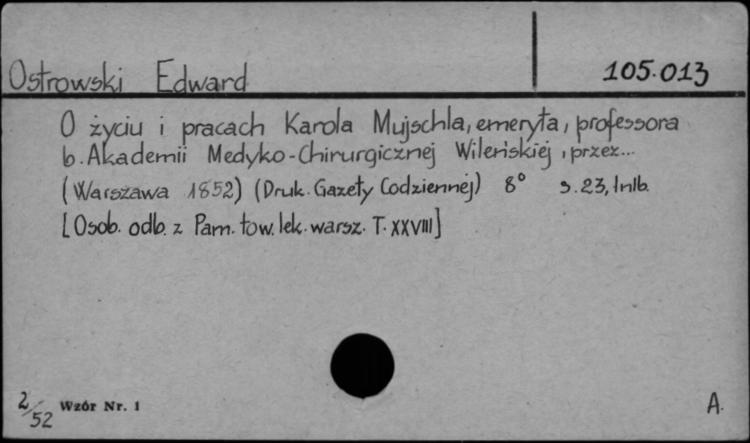 Ostrowski Edward
105.013
O życiu i pracach Karola Mujschla, emeryta, professora
b. Akademii Medyko-Chirurgicznej Wileńskiej, przez...
(Warszawa 1852) (Druk. Gazety Codziennej) 8° s. 23, lnlb.
[Osob. odb. z Pam. tow. lek. warsz. T. XXVIII]
2/52 Wzór Nr. 1
A.